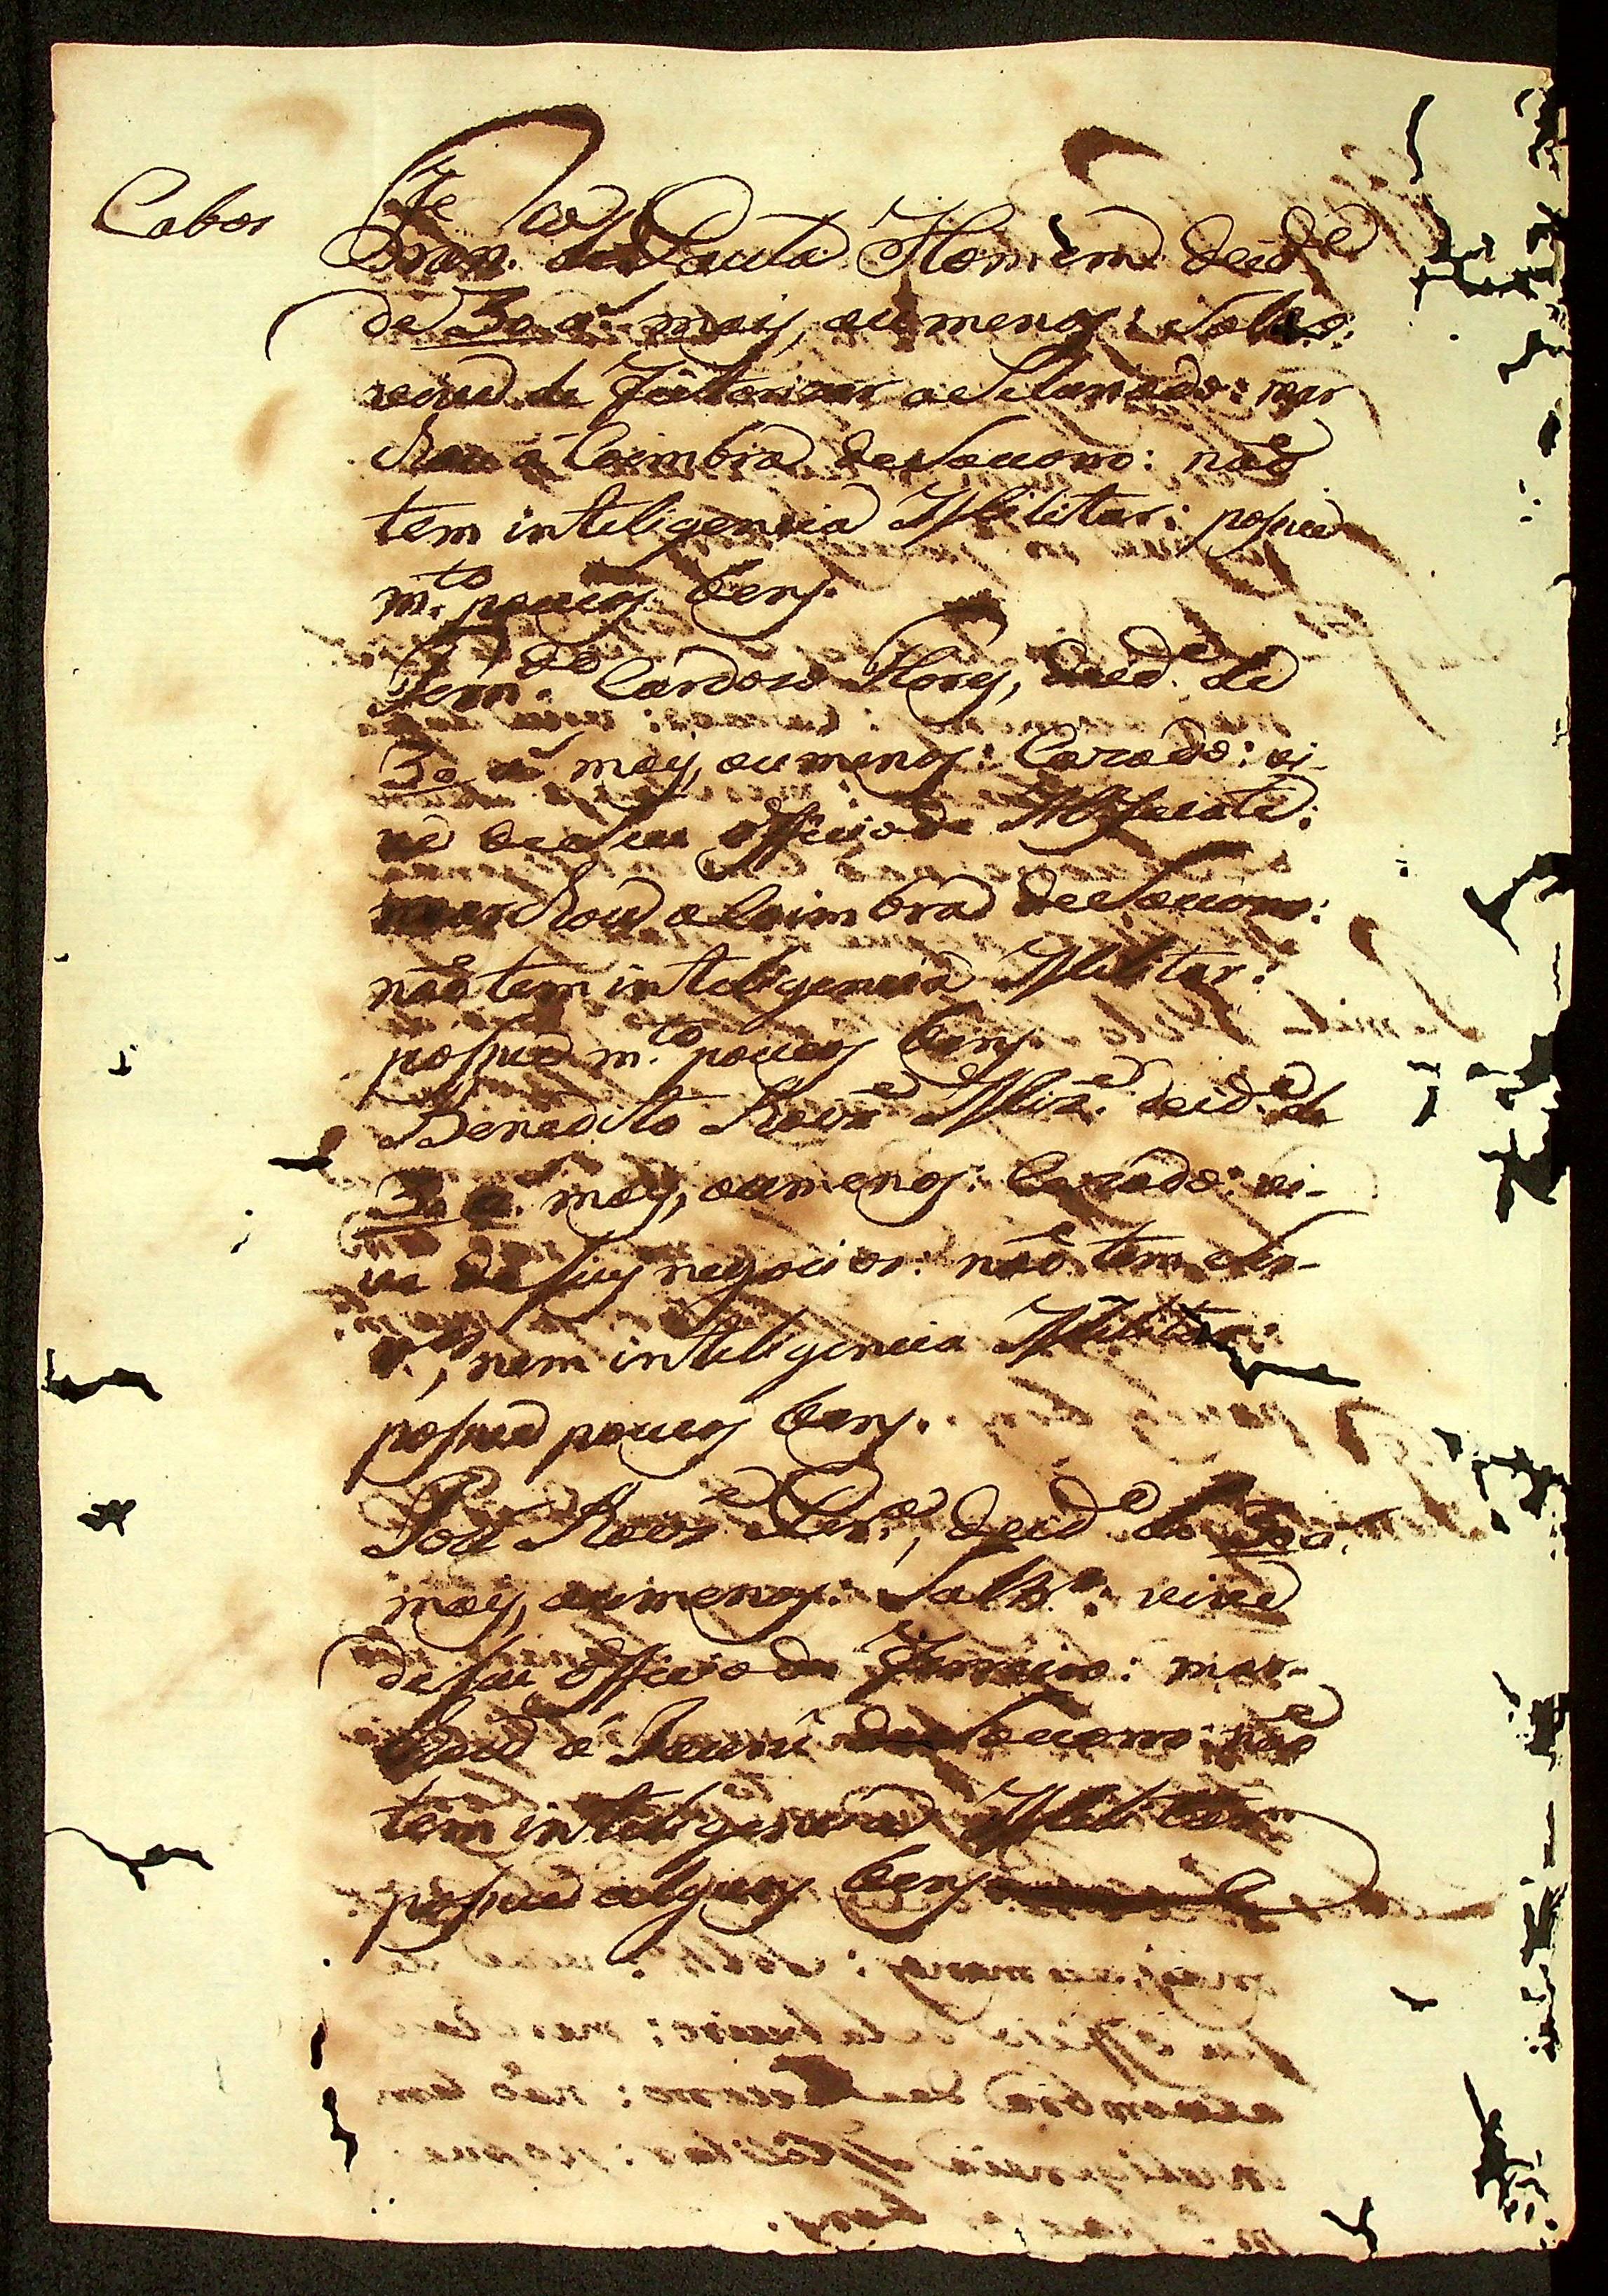 Cabos
Fran.co de Paula Homem de id.e
de 30 a.s mais, ou menos: Soltr.o:
vive de feitorizar a Seu mando: mar
chou a Coimbra de Socorro: não
tem inteligencia Militar: possue
m.to poucos bens.
Fern.do Cardoso Flores, de id.e de
30 a.s mais, ou menos: Cazado: vi-
ve do Seu officio de Alfaiate:
marchou a Coimbra de Socorro:
não tem inteligencia Militar:
possue m.to poucos bens.
Benedito Roiz' de id.e de
30 a.s mais, ou menos: Cazado: vi-
ve de seus negocios: não tem
nem inteligencia Militar:
possue poucos bens.
José Roiz' de id.e de 30 a.s
mais, ou menos: Soltr.o: vive
de seu officio de Ferreiro: mar-
chou a de Socorro: não
tem inteligencia Militar
possue alguns bens